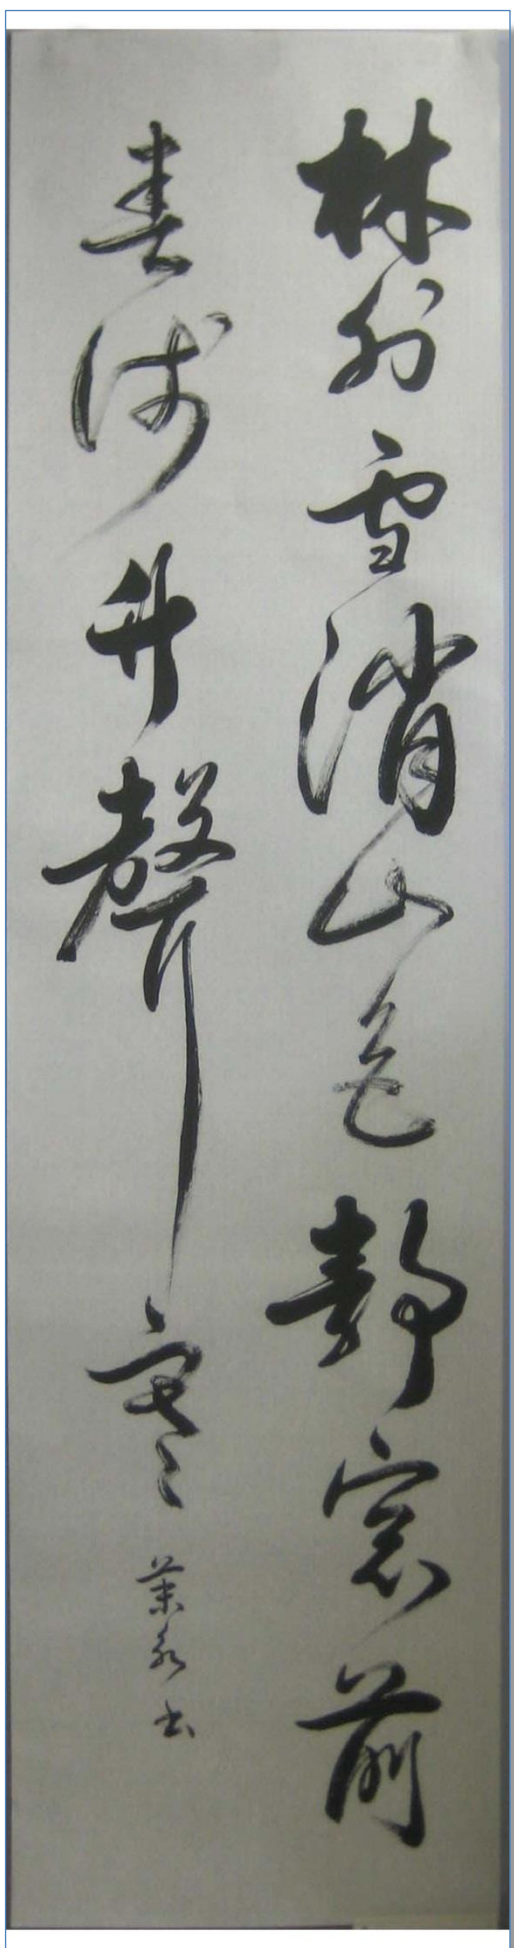 林外雪消山色靜窓前
春浅竹聲寒
葉永書